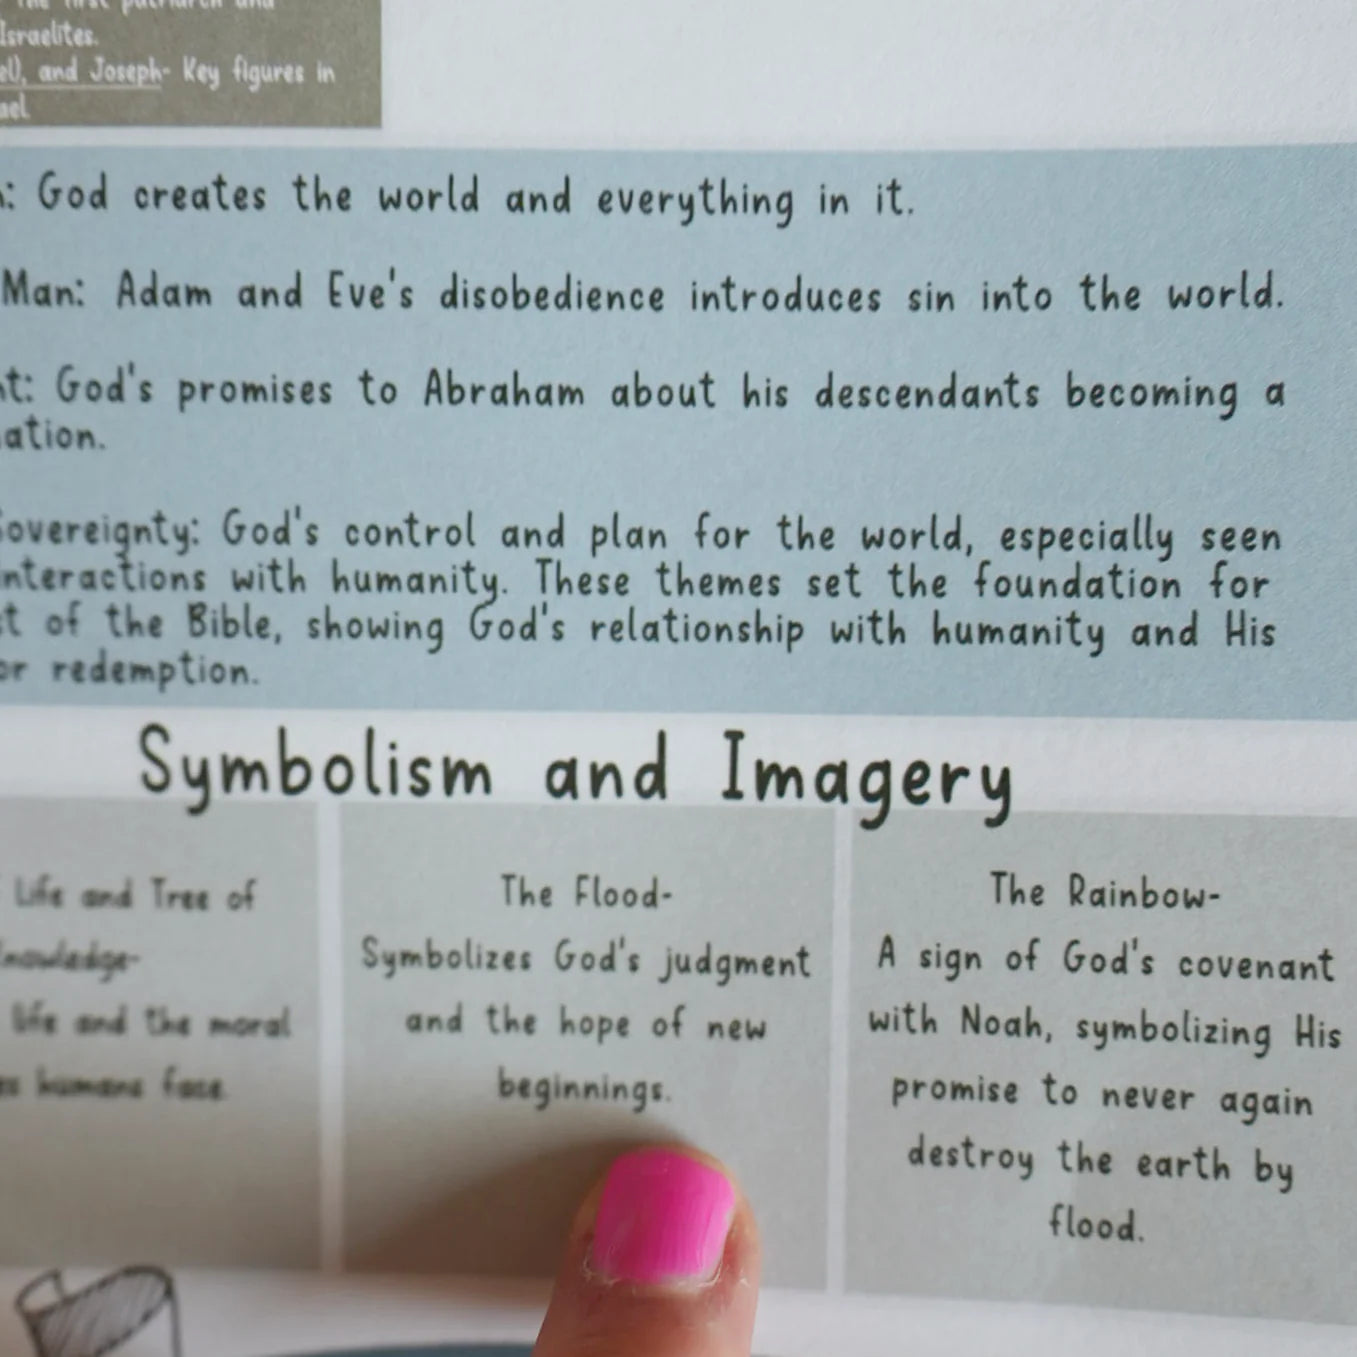 Israelites.
and Joseph- Key figures in
God creates the world and everything in it.
Man: Adam and Eve's disobedience introduces sin into the world.
God's promises to Abraham about his descendants becoming a
ation.
overeignty: God's control and plan for the world, especially seen
nteractions with humanity. These themes set the foundation for
of the Bible, showing God's relationship with humanity and His
or redemption.
Symbolism and Imagery
Life and Tree of
nowledge-
life and the moral
humans face.
The Flood-
Symbolizes God's judgment
and the hope of new
beginnings.
The Rainbow-
A sign of God's covenant
with Noah, symbolizing His
promise to never again
destroy the earth by
flood.